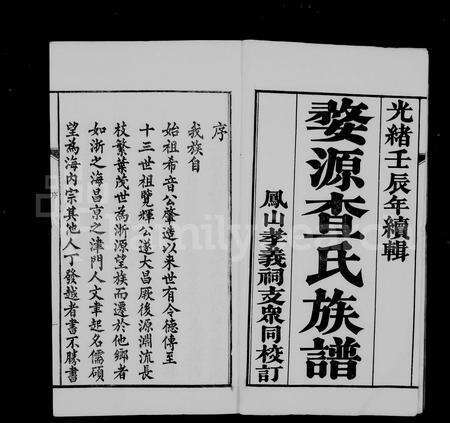 光緒壬辰年續輯
婺源查氏族譜
鳳山孝義祠支衆同校訂
序
我族自
始祖希音公肇造以來世有令德傳至
十三世祖覽輝公遂大昌厥後源淵流長
枝繁葉茂世為浙源望族而遷於他鄉者
如浙之海昌京之津門人文聿起名儒碩
望為海內宗其他人丁發越者書不勝書
FamilySearch